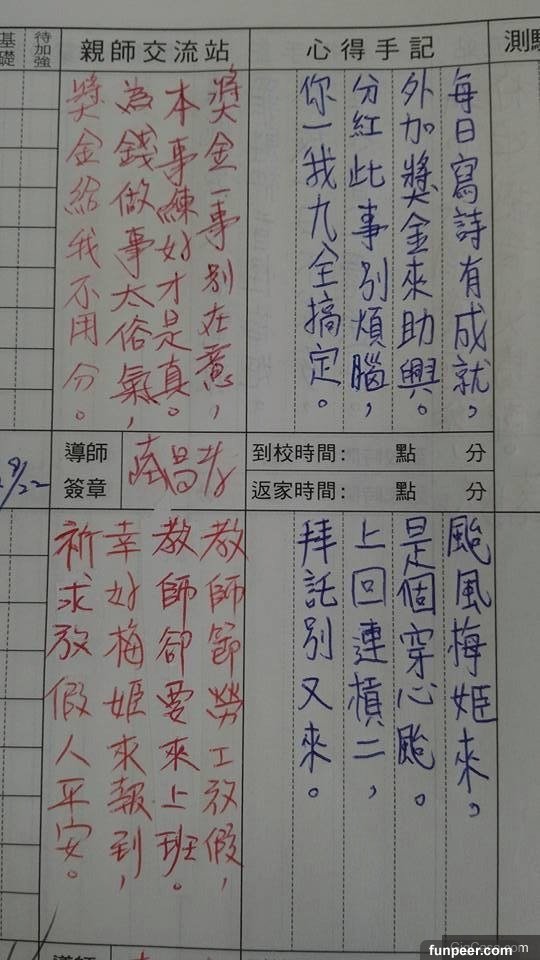 基礎
待加強
親師交流站
心得手記
每日寫詩有成就。
外加獎金來助興。
分紅此事別煩腦，
你一我九全搞定。
獎金一事別在意，
本事練好才是真。
為錢做事太俗氣，
獎金給我不用分。
9/22
導師
簽章
到校時間： 點 分
返家時間： 點 分
颱風梅姬來。
是個穿心颱。
上回連槓二，
拜託別又來。
教師節勞工放假，
教師卻要來上班。
幸好梅姬來報到，
祈求放假人平安。
導師
funpeer.com